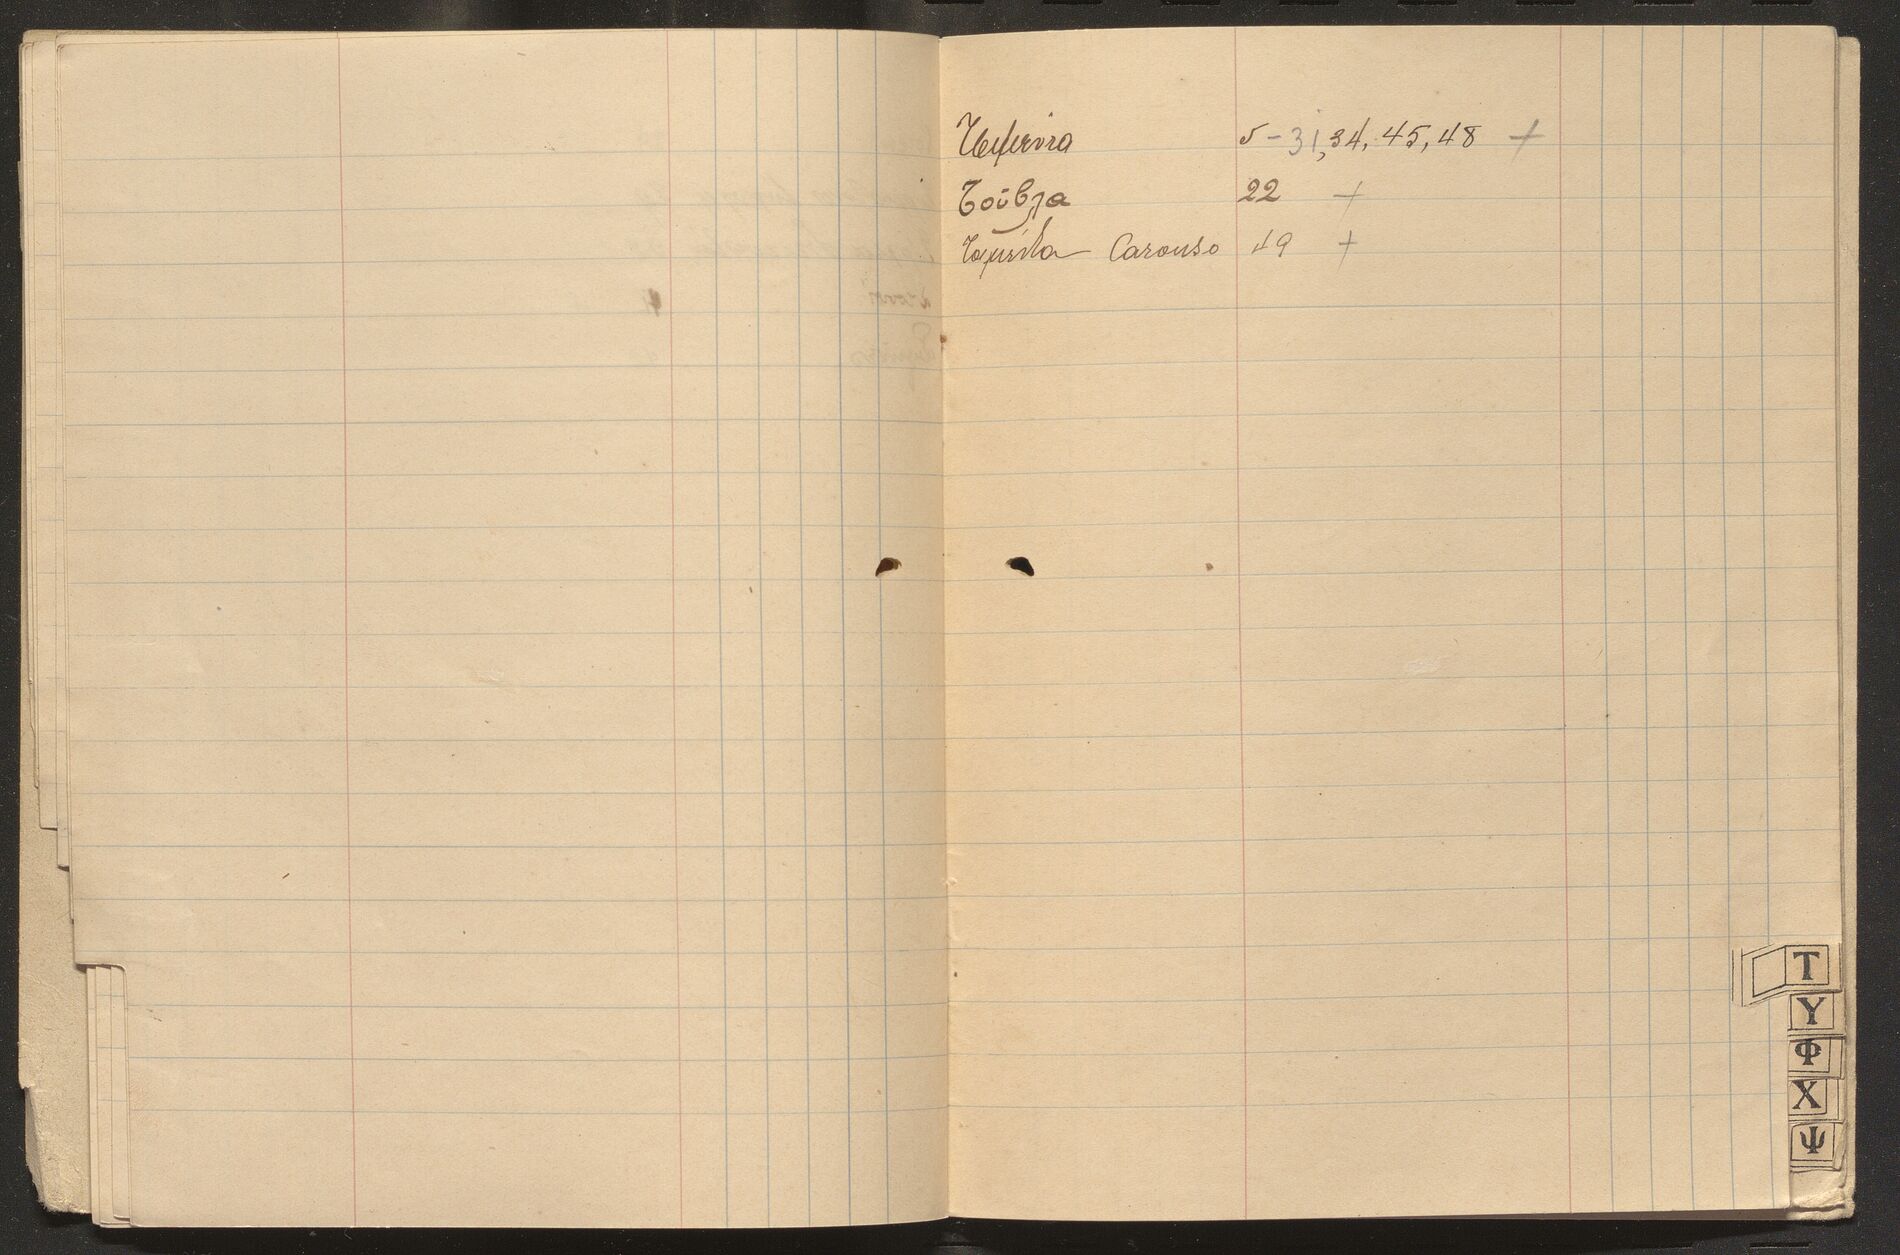 Τσιμέντα 5-31, 34, 45, 48 +
Τούβλα 22 +
Carouso 49 +
Τ
Υ
Φ
Χ
Ψ